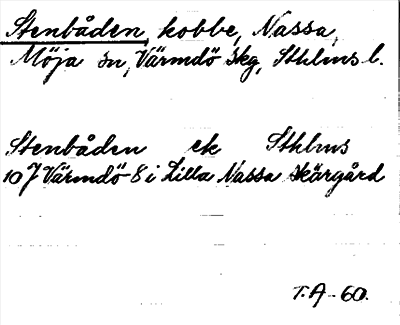 Stenbåden, kobbe, Nassa,
Möja sn, Värmdö skg, Sthlms l.
Stenbåden ek Sthlms
10 J Värmdö 8 i Lilla Nassa skärgård
T.A-60.